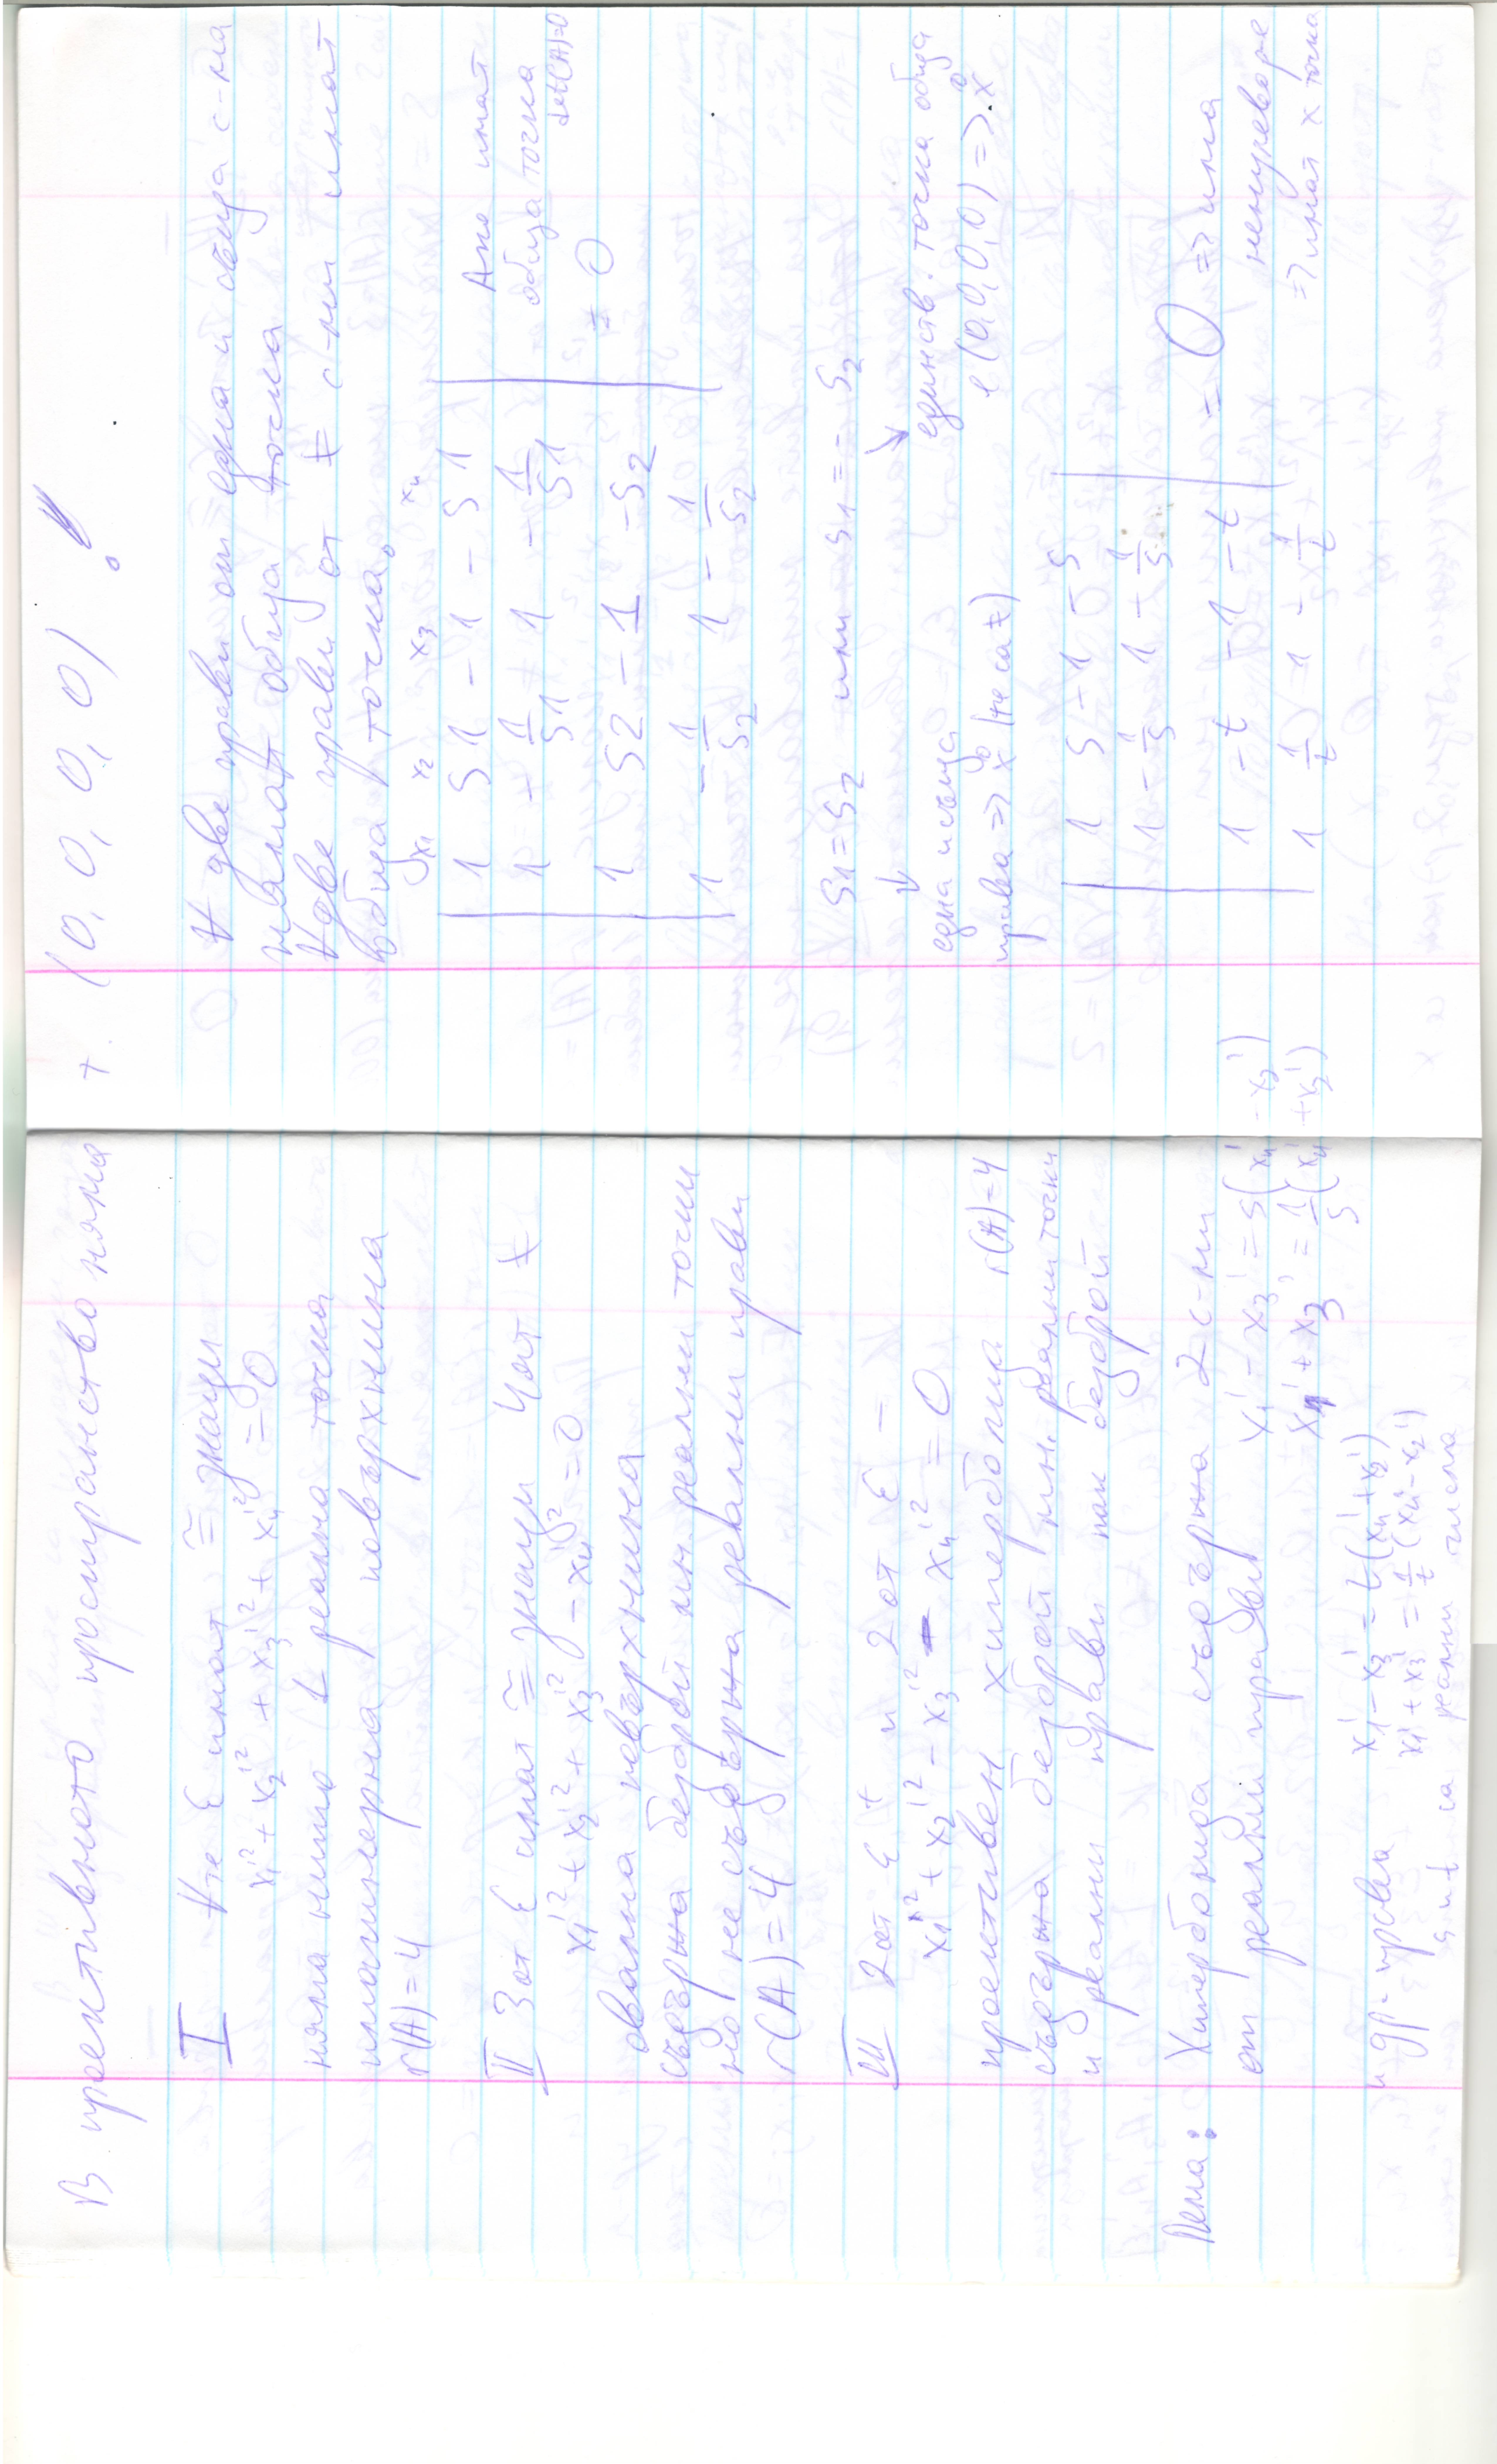 В проективното пространство няма
I ∀те ε имат ≅ знаци
x₁'² + x₂'² + x₃'² + x₄'² = 0
няма нито 1 реална точка
имагинерна повърхнина
r(A) = 4
II 3 от ε имат ≅ знаци 4от ≠
x₁'² + x₂'² + x₃'² - x₄'² = 0
овална повърхнина
съдържа безброй мн. реални точки
но не съдържа реални прави
r(A) = 4
III 2 от ε + и 2 от ε -
x₁'² + x₂'² - x₃'² - x₄'² = 0
проективен хиперболоид r(A) = 4
съдържа безброй мн. реални точки
и реални прави пак безброй
Лема: Хиперболоида съдържа 2 с-ми
от реални прави x₁' - x₃' = s(x₄' - x₂')
x₁' + x₃' = 1/s (x₄' + x₂')
и др. прави x₁' - x₃' = t(x₄' + x₂')
x₁' + x₃' = 1/t (x₄' - x₂')
s и t са реални числа
т. (0, 0, 0, 0) !
∀ две прави от една и съща с-ма
нямат обща точка
∀ две прави от ≠ с-ми имат
обща точка.
x₁ x₂ x₃ x₄
1 s1 -1 -s1
1 -1/s1 1 -1/s1
1 s2 -1 -s2
1 -1/s2 1 -1/s2
≠ 0
Ако имат
обща точка
det(A)=0
s1 = s2 или s1 = - s2
↓ ↘
една и съща
права => x (не са ≠)
единств. точка обща
е (0,0,0,0) => x
1 s -1 -s
1 -1/s 1 -1/s
1 -t -1 -t
1 1/t 1 -1/t
= 0 => има
ненулево реш
=> имат x точка